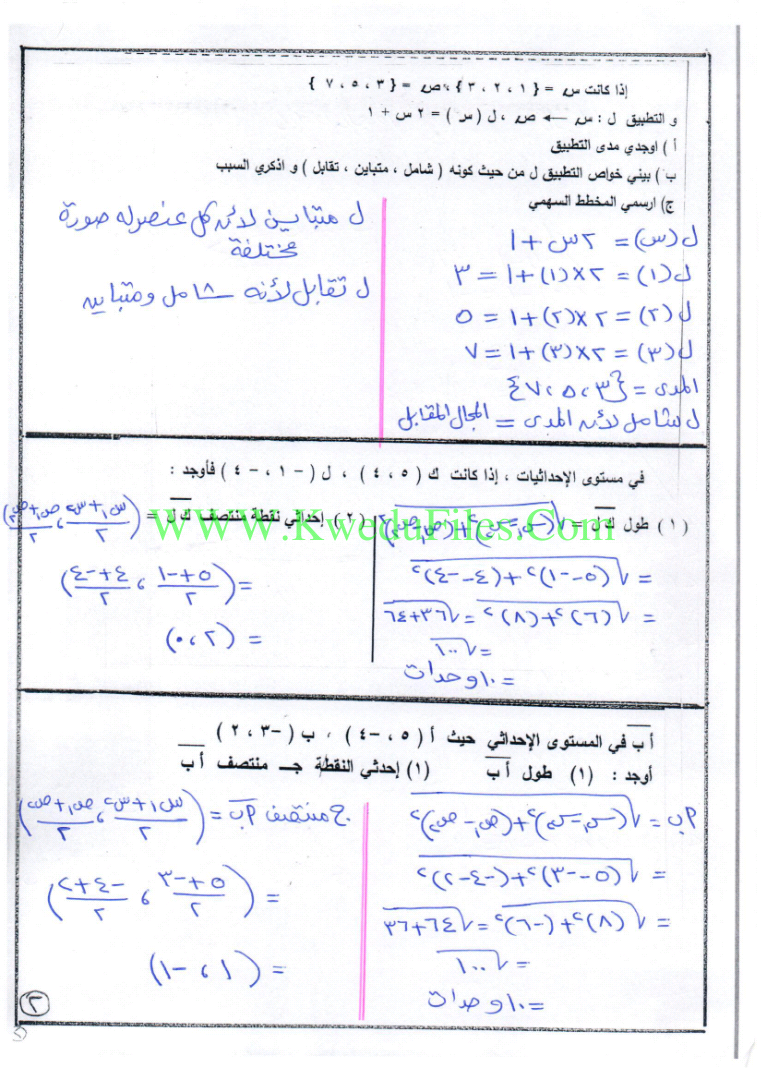 إذا كانت س = { ١ ، ٢ ، ٣ } ، ص = { ٣ ، ٥ ، ٧ }
و التطبيق ل : س ← ص ، ل ( س ) = ٢ س + ١
أ ) اوجدي مدى التطبيق
ب ) بيني خواص التطبيق ل من حيث كونه ( شامل ، متباين ، تقابل ) و اذكري السبب
ج) ارسمي المخطط السهمي
ل (س) = ٢س + ١
ل (١) = ٢×(١) + ١ = ٣
ل (٢) = ٢×(٢) + ١ = ٥
ل (٣) = ٢×(٣) + ١ = ٧
المدى = {٣ ، ٥ ، ٧}
ل شامل لأن المدى = المجال المقابل
ل متباين لأن كل عنصر له صورة
مختلفة
ل تقابل لأنه شامل ومتباين
في مستوى الإحداثيات ، إذا كانت ك ( ٥ ، ٤ ) ، ل ( - ١ ، - ٤ ) فأوجد :
( ١ ) طول ك ل = √(س١ - س٢)² + (ص١ - ص٢)²
= √(٥ - -١)² + (٤ - -٤)²
= √(٦)² + (٨)² = √٣٦ + ٦٤
= √١٠٠
= ١٠ وحدات
( ٢ ) إحداثي نقطة منتصف ك ل = (س١ + س٢ / ٢ ، ص١ + ص٢ / ٢)
= (٥ + -١ / ٢ ، ٤ + -٤ / ٢)
= (٢ ، ٠)
WWW.KweduFiles.Com
أ ب في المستوى الإحداثي حيث أ ( ٥ ، -٤ ) ، ب ( -٣ ، ٢ )
أوجد : (١) طول أ ب (١) إحدثي النقطة جـ منتصف أ ب
أ ب = √(س١ - س٢)² + (ص١ - ص٢)²
= √(٥ - -٣)² + (-٤ - ٢)²
= √(٨)² + (-٦)² = √٦٤ + ٣٦
= √١٠٠
= ١٠ وحدات
ج منتصف أ ب = (س١ + س٢ / ٢ ، ص١ + ص٢ / ٢)
= (٥ + -٣ / ٢ ، -٤ + ٢ / ٢)
= (١ ، -١)
٢